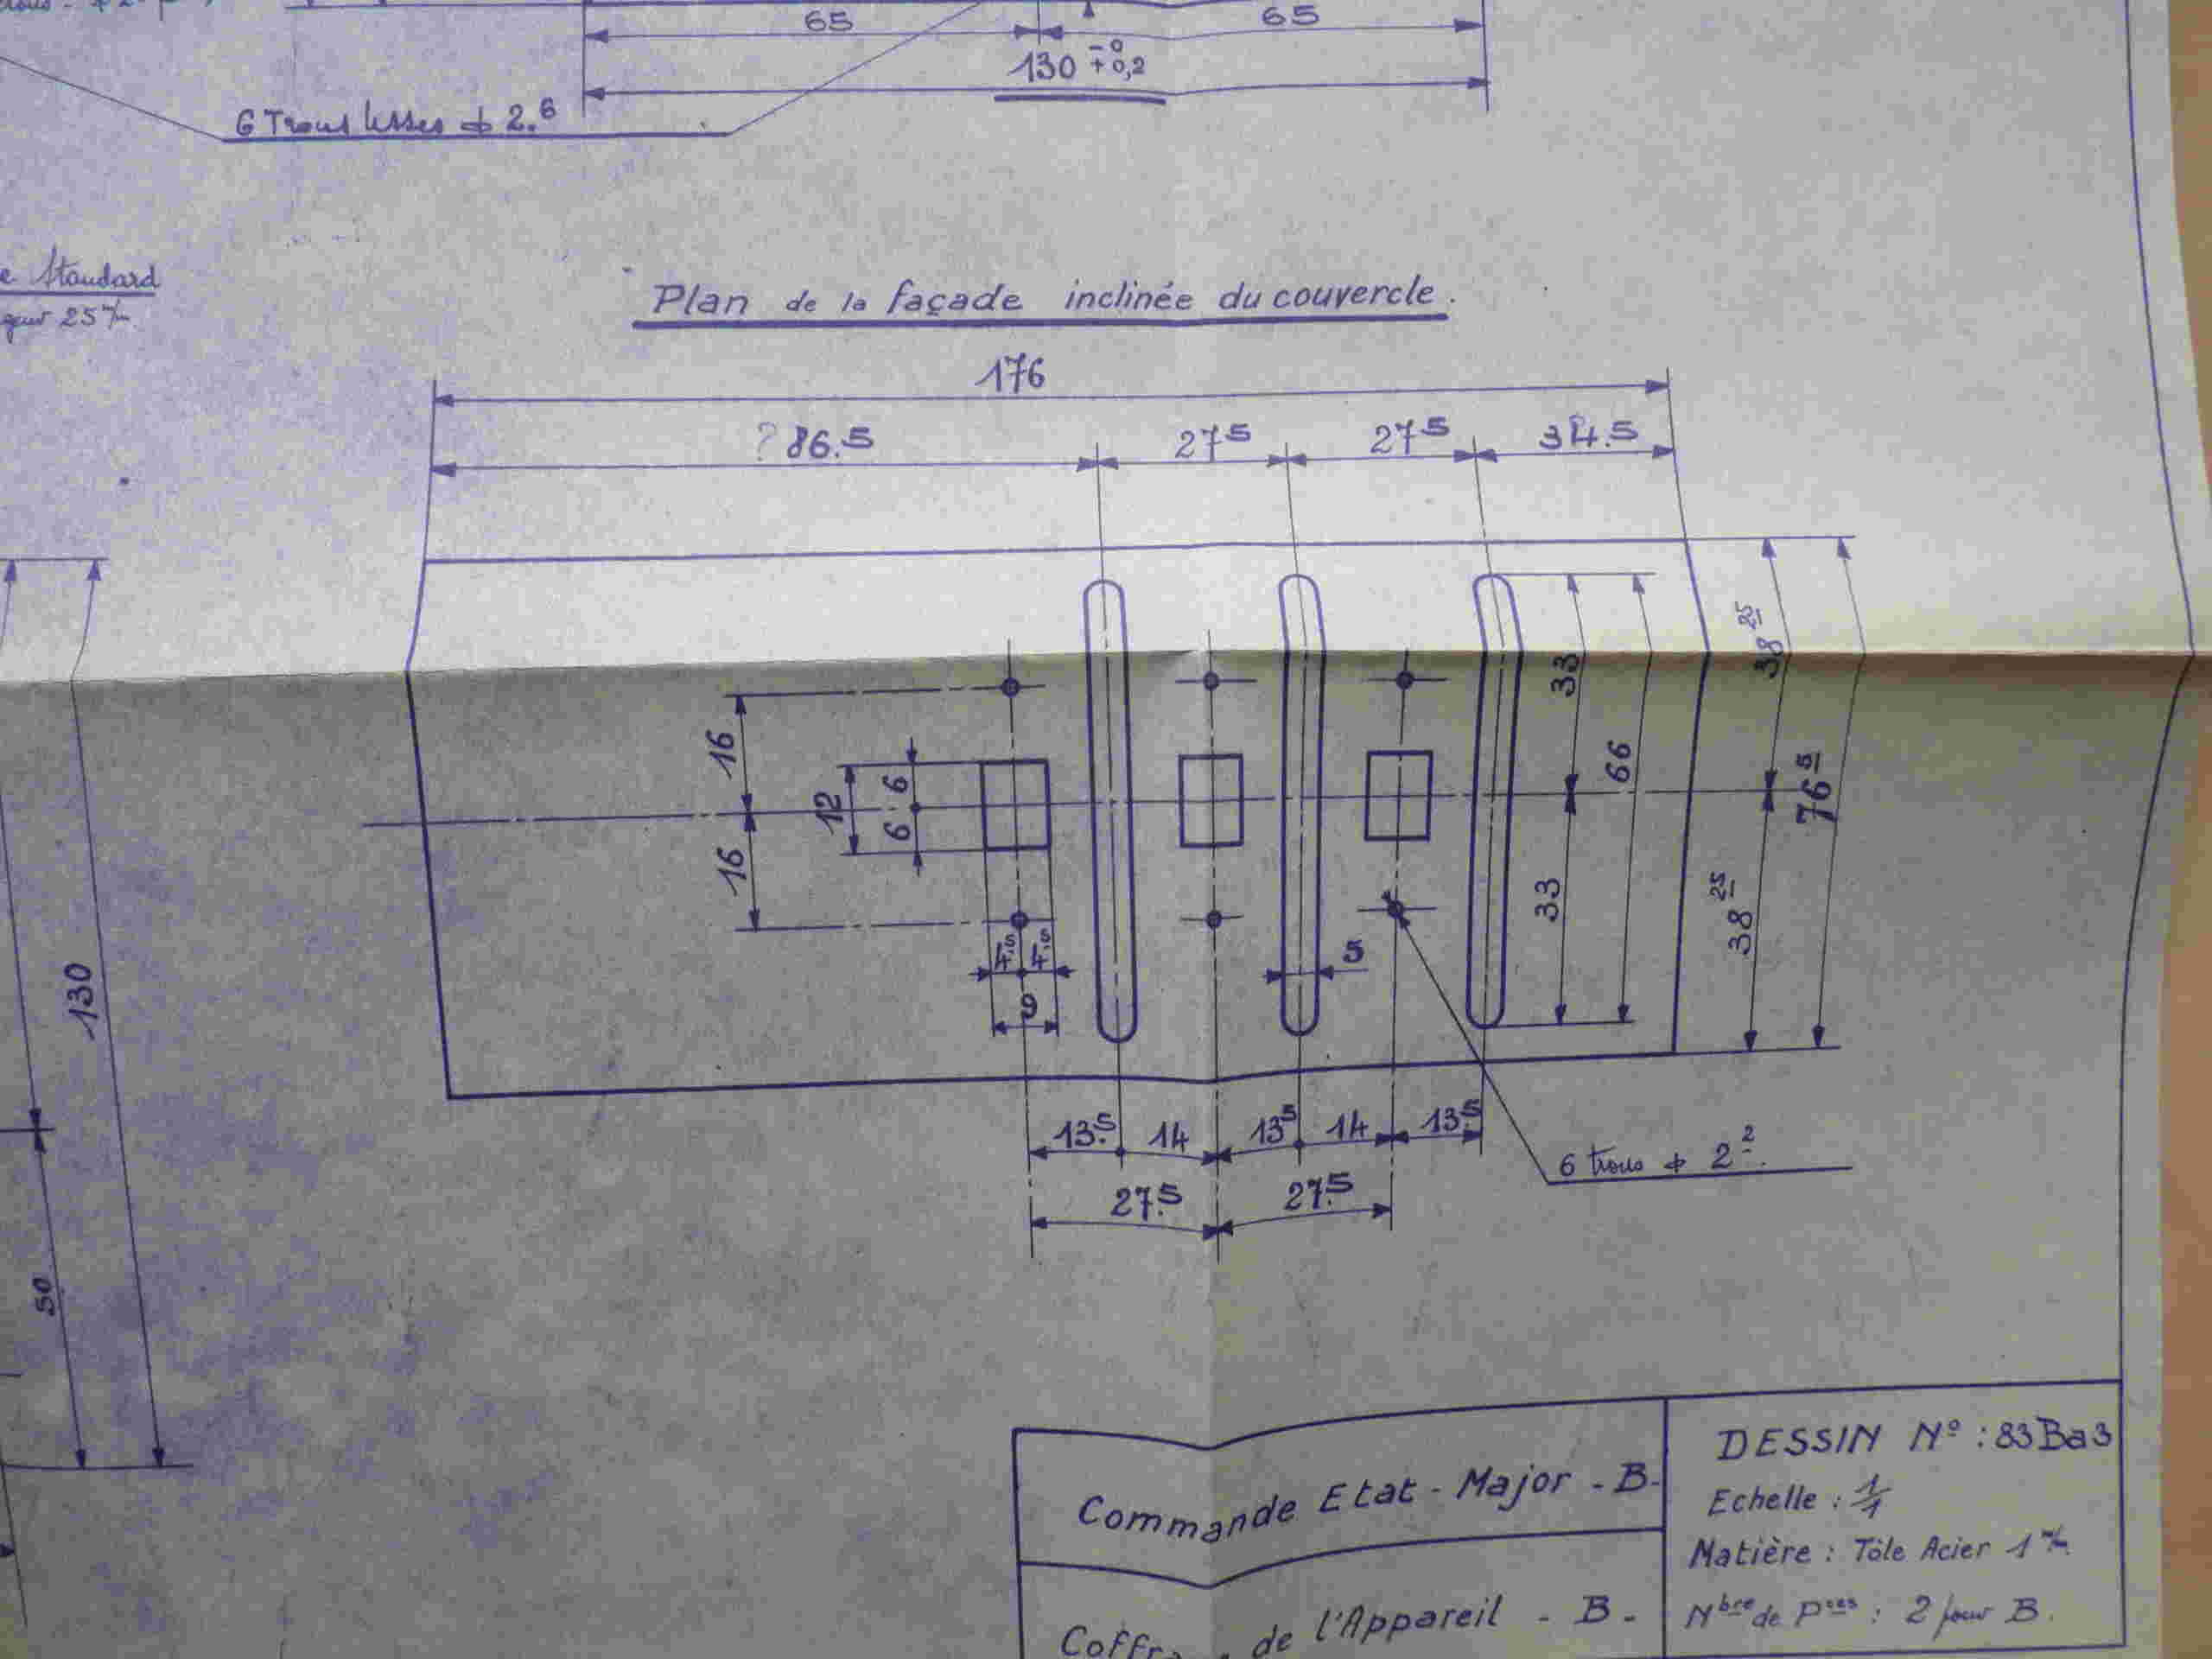 65
65
130 -0 +0,2
6 Trous lisses ϕ 2.6
e Standard
25 m/m
Plan de la façade inclinée du couvercle.
176
? 86.5
27 5
27 5
34.5
16
16
12
6
6
4,5
4,5
9
5
33
33
66
38 25
38 25
76 5
130
50
13.5
14
13 5
14
13.5
27.5
27.5
6 trous ϕ 2 2.
Commande Etat - Major - B -
de l'Appareil - B -
DESSIN Nº : 83Ba3
Echelle : 1/1
Matière : Tôle Acier 1 m/m
Nbre de Pces : 2 pour B.